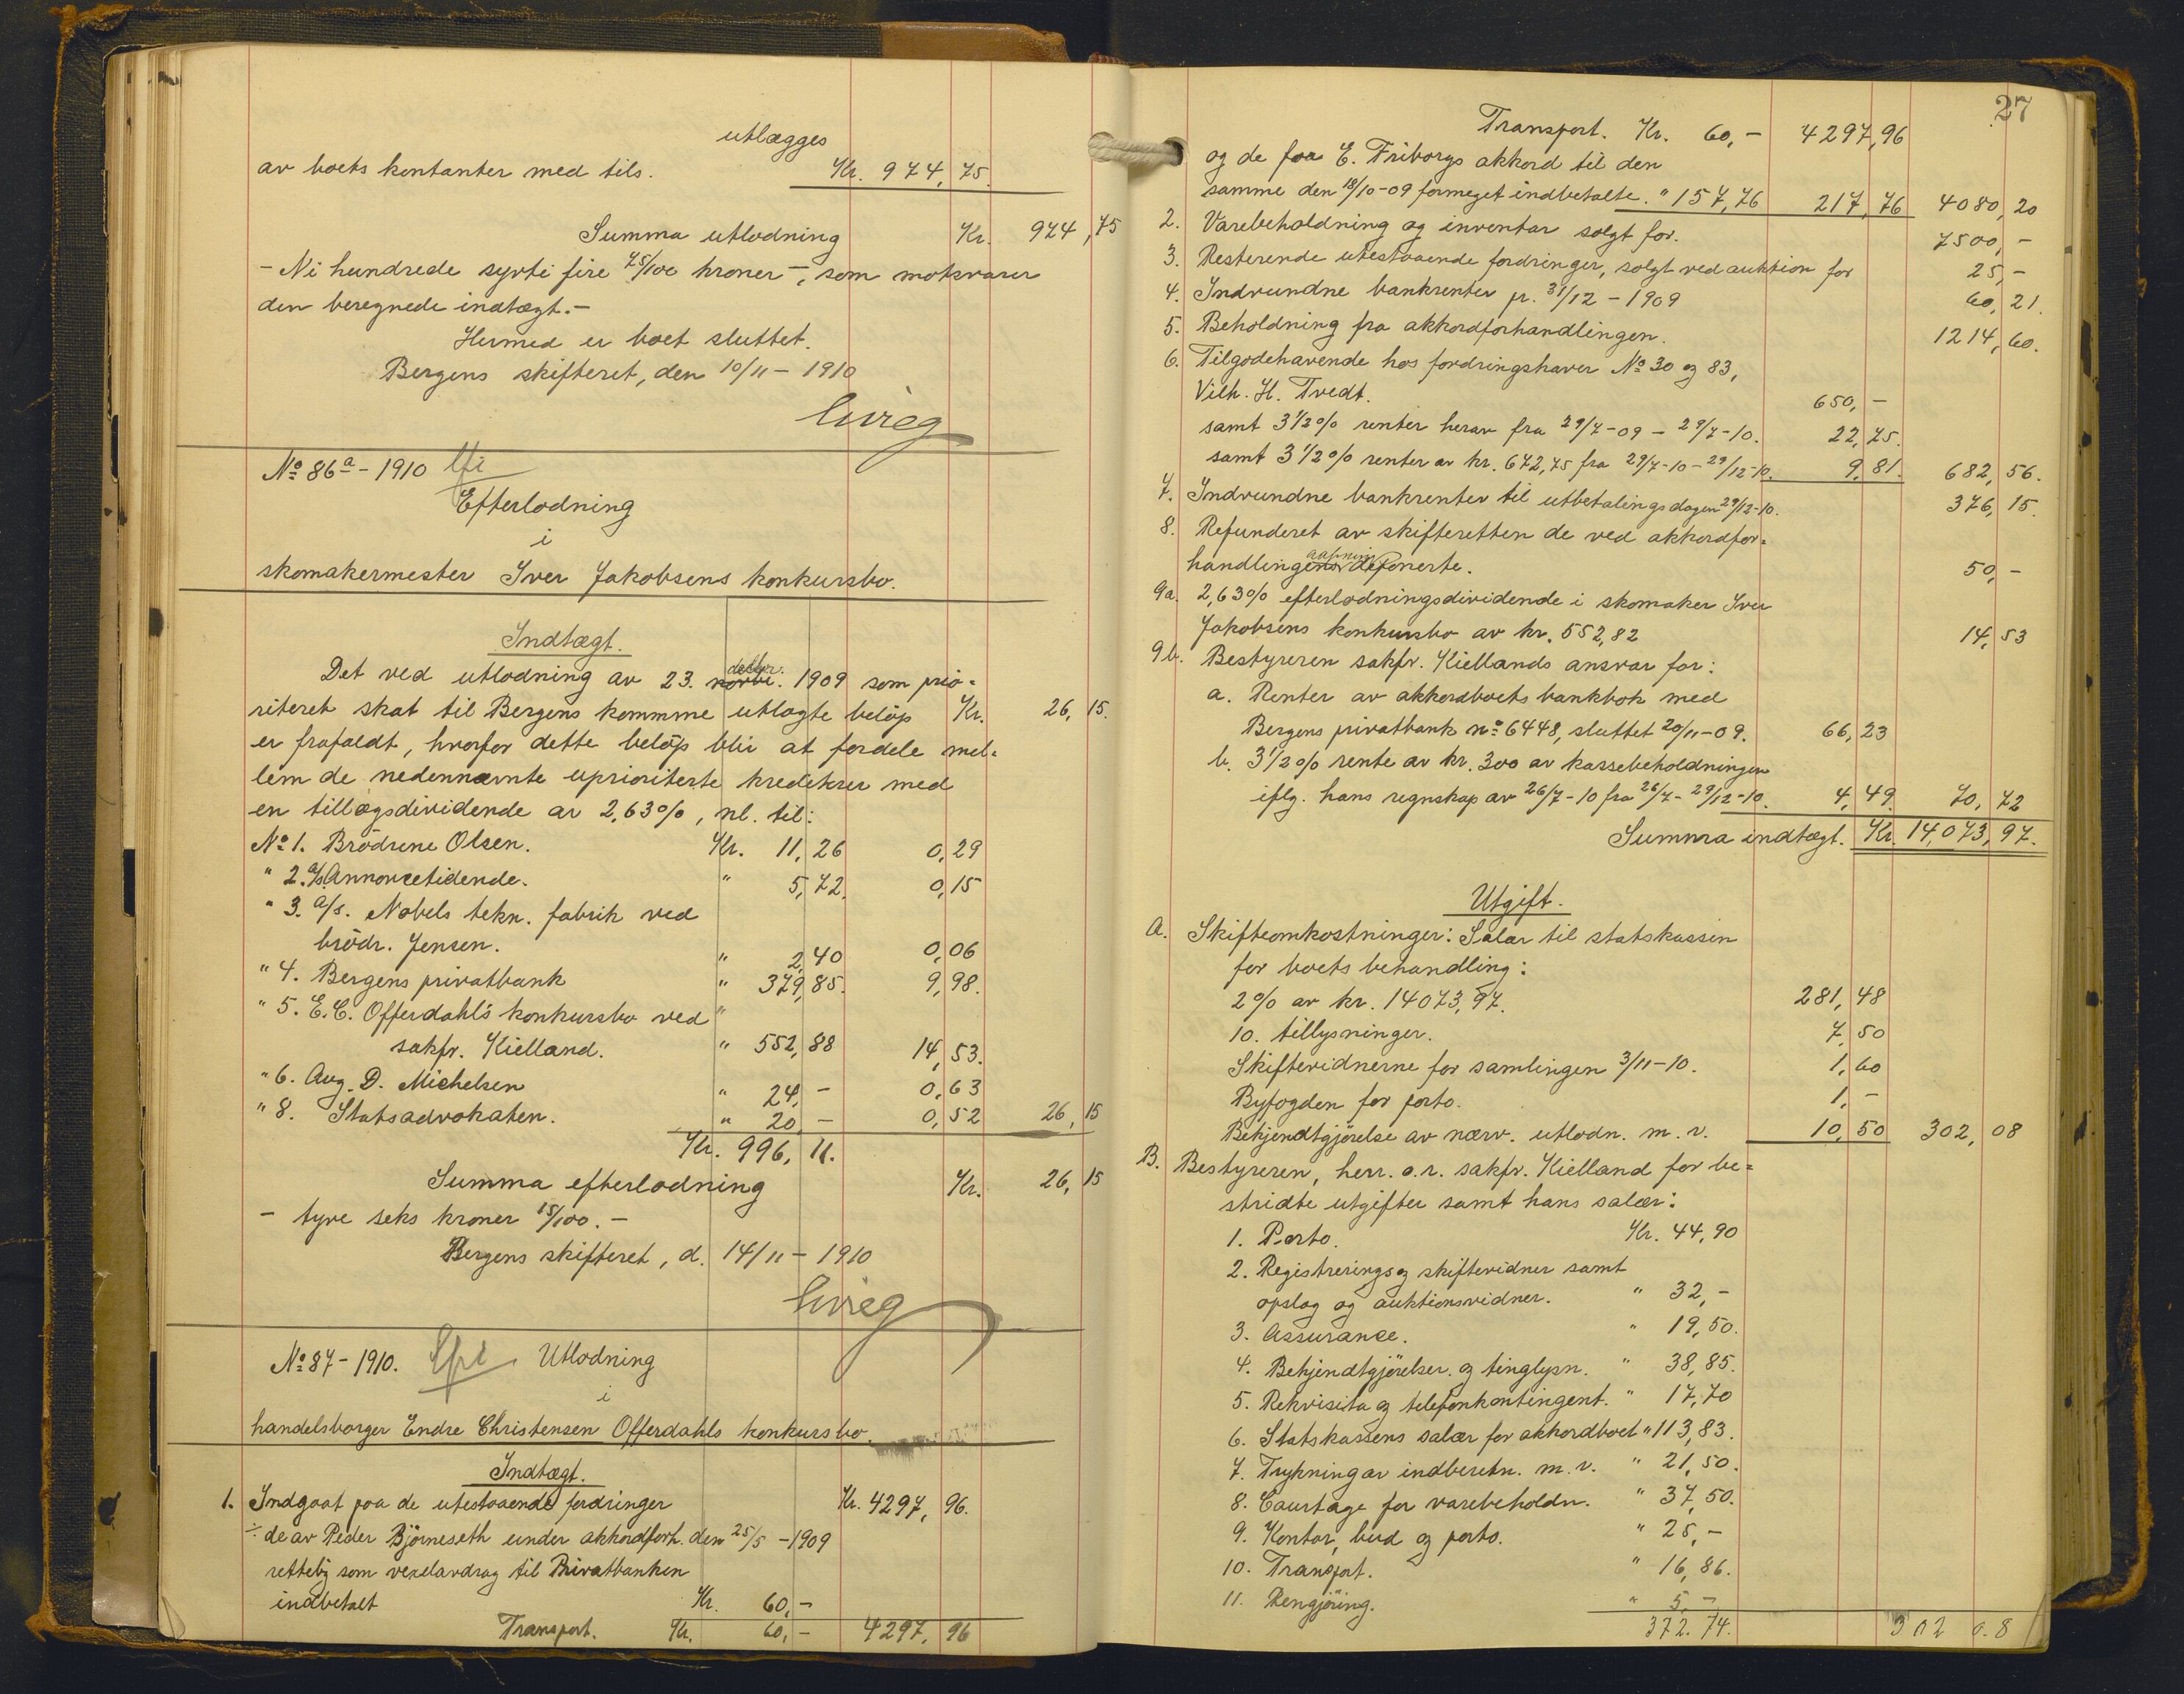 utlægges
av boets kontanter med tils. Kr. 974,75.
Summa utlodning Kr. 974,75
- Ni hundrede sytti fire 75/100 kroner -, som motsvarer
den beregnede indtægt. -
Hermed er boet sluttet.
Bergens skifteret, den 10/11 - 1910
No 86a - 1910
Efterlodning
i
skomakermester Iver Jakobsens konkursbo.
Indtægt.
Det ved utlodning av 23. novbr. decbr. 1909 som prio-
ritert skat til Bergens kommune utlagte beløp Kr. 26,15.
er frafaldt, hvorfor dette beløp blir at fordele mel-
lem de nedennævnte uprioriterte kreditorer med
en tillægsdividende av 2,63%, nl. til:
No 1. Brödrene Olsen. Kr. 11,26 0,29
" 2. A/S Annoncetidende. " 5,72. 0,15
" 3. A/S. Nobels tekn. fabrik ved
brödr. Jensen. " 2,40 0,06
" 4. Bergens privatbank " 379,85. 9,98.
" 5. E. C. Offerdahl's konkursbo ved "
sakfr. Kielland. " 552,88 14,53.
" 6. Aug. D. Michelsen " 24,- 0,63
" 8. Statsadvokaten. " 20,- 0,52 26,15
Kr. 996,11.
Summa efterlodning Kr. 26,15
- tyve seks kroner 15/100. -
Bergens skifteret, d. 14/11 - 1910
No 87 - 1910. Utlodning
i
handelsborger Endre Christensen Offerdahls konkursbo.
Indtægt.
1. Indgaat paa de utestaaende fordringer Kr. 4297,96.
÷ de av Peder Björneseth under akkordforh. den 25/5 - 1909
rettelig som vexelavdrag til Privatbanken
indbetalt Kr. 60,-
Transport. Kr. 60,- 4297,96
27
Transport. Kr. 60,- 4297,96
og de paa E. Friborgs akkord til den
samme den 18/10-09 formeget indbetalte. " 157,76 217,76 4080,20
2. Varebeholdning og inventar solgt for. 7500,-
3. Resterende utestaaende fordringer, solgt ved auktion for 25,-
4. Indvundne bankrenter pr. 31/12 - 1909 60,21.
5. Beholdning fra akkordforhandlingen. 1214,60.
6. Tilgodehavende hos fordringshaver No 30 og 83,
Vilh. H. Tvedt. 650,-
samt 3 1/2% renter herav fra 29/7-09 - 29/7-10. 22,75.
samt 3 1/2% renter av kr. 672,75 fra 29/7-10 - 29/12-10. 9,81. 682,56.
7. Indvundne bankrenter til utbetalingsdagen 29/12-10. 376,15.
8. Refunderet av skifteretten de ved akkordfor-
handlingens aapning deponerte. 50,-
9a. 2,63% efterlodningsdividende i skomaker Iver
Jakobsens konkursbo av kr. 552,82 14,53
9b. Bestyreren sakfr. Kiellands ansvar for:
a. Renter av akkordboets bankbok med
Bergens privatbank no 6448, sluttet 20/11-09. 66,23
b. 3 1/2% rente av kr. 300 av kassebeholdningen
iflg. hans regnskap av 26/7-10 fra 26/7 - 29/12-10. 4,49. 70,72
Summa indtægt. Kr. 14,073,97.
Utgift.
A. Skifteomkostninger: Salær til statskassen
for boets behandling:
2% av kr. 14073,97. 281,48
10. tillysninger. 7,50
Skiftevidnerne for samlingen 3/11-10. 1,60
Byfogden for porto. 1,-
Bekjendtgjörelse av nærv. utlodn. m. v. 10,50 302,08
B. Bestyreren, herr. o.r. sakfr. Kielland for be-
stridte utgifter samt hans salær:
1. Porto. Kr. 44,90
2. Registrerings og skiftevidner samt
opslag og auktionsvidner. " 32,-
3. Assurance. " 19,50.
4. Bekjendtgjörelser og tinglysn. " 38,85.
5. Rekvisita og telefonkontingent. " 17,70
6. Statskassens salær for akkordboet " 113,83.
7. Trykning av indberetn. m. v. " 21,50.
8. Courtage for varebeholdn. " 37,50.
9. Kontor, bud og porto. " 25,-
10. Transport. " 16,86.
11. Rengjöring. " 5,-
372.74. 302 0.8